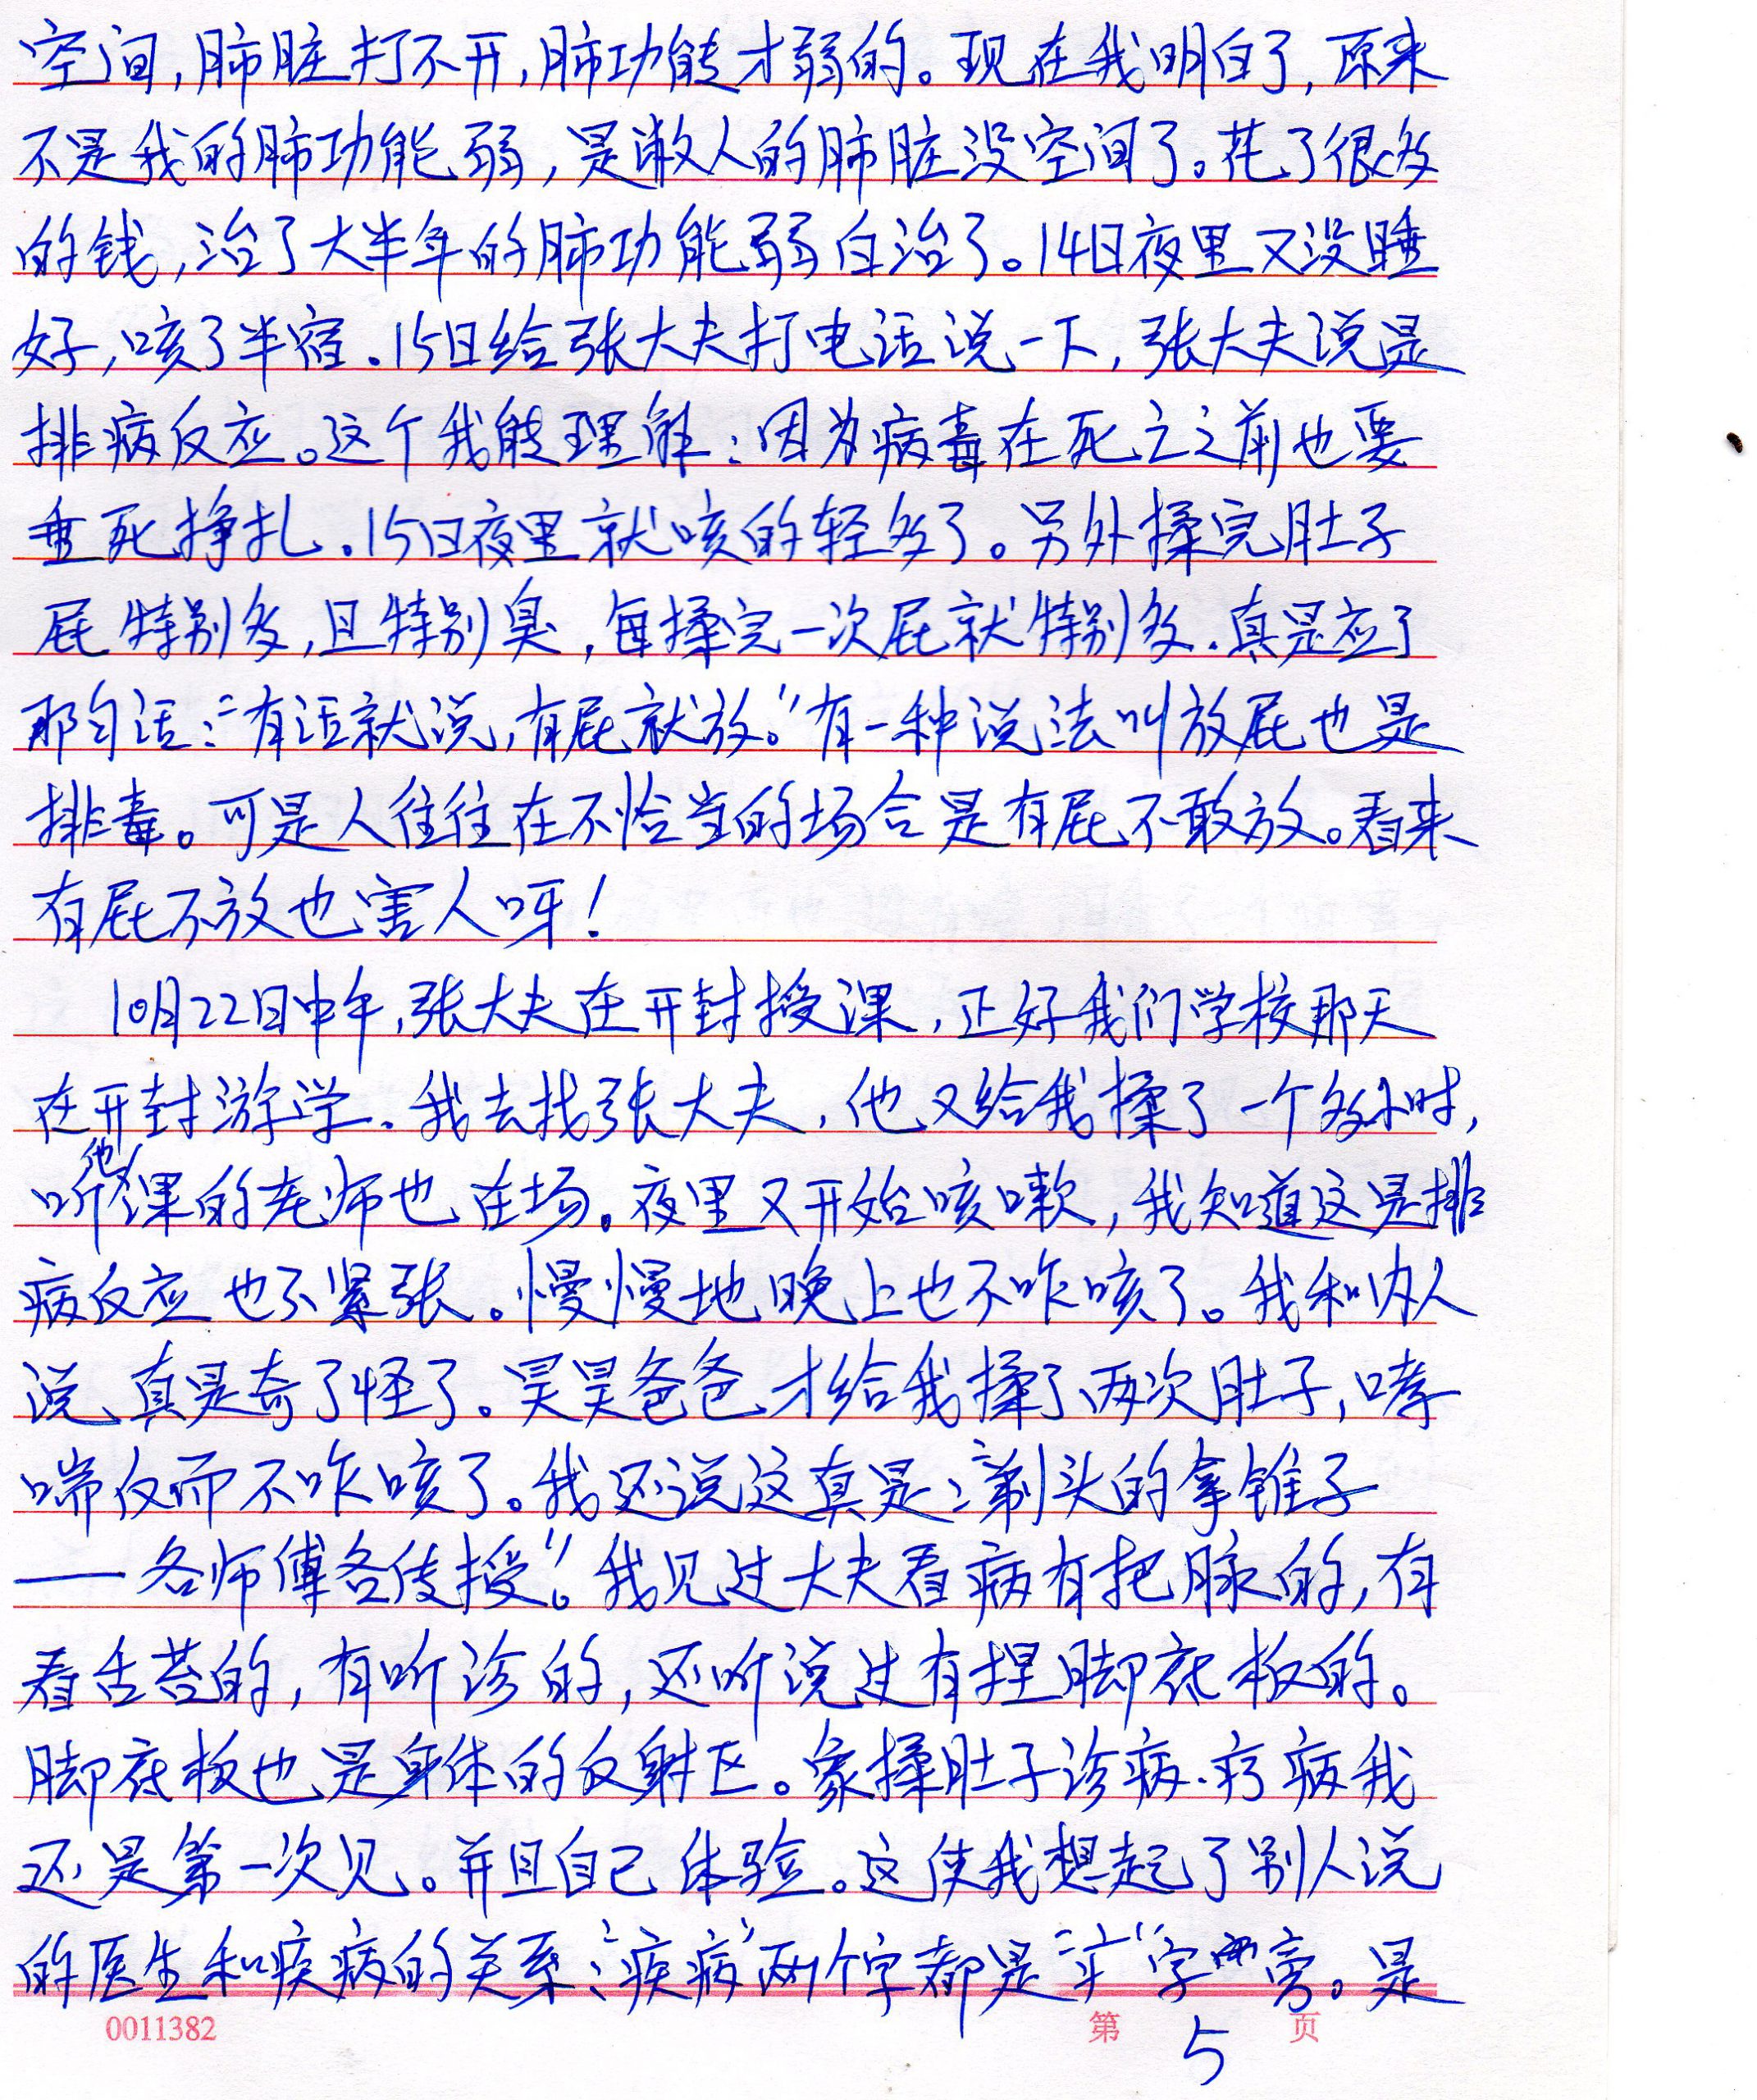 空间，肺脏打不开，肺功能才弱的。现在我明白了，原来
不是我的肺功能弱，是敝人的肺脏没空间了。花了很多
的钱，治了大半年的肺功能弱白治了。14日夜里又没睡
好，咳了半宿．15日给张大夫打电话说一下，张大夫说是
排病反应。这个我能理解：因为病毒在死亡之前也要
垂死挣扎．15日夜里就咳的轻多了。另外揉完肚子
屁特别多，且特别臭，每揉完一次屁就特别多．真是应了
那句话：“有话就说，有屁就放。”有一种说法叫放屁也是
排毒。可是人往往在不恰当的场合是有屁不敢放。看来
有屁不放也害人呀！
10月22日中午，张大夫在开封授课，正好我们学校那天
在开封游学．我去找张大夫，他又给我揉了一个多小时，
听他课的老师也在场。夜里又开始咳嗽，我知道这是排
病反应也不紧张。慢慢地晚上也不咋咳了。我和内人
说、真是奇了怪了。昊昊爸爸才给我揉了两次肚子，哮
喘反而不咋咳了。我还说这真是：“剃头的拿锥子
——各师傅各传授”。我见过大夫看病有把脉的，有
看舌苔的，有听诊的，还听说过有捏脚底板的。
脚底板也是身体的反射区。象揉肚子诊病．疗病我
还是第一次见。并且自己体验。这使我想起了别人说
的医生和疾病的关系：“疾病”两个字都是“疒”字旁。是
0011382
第 5 页